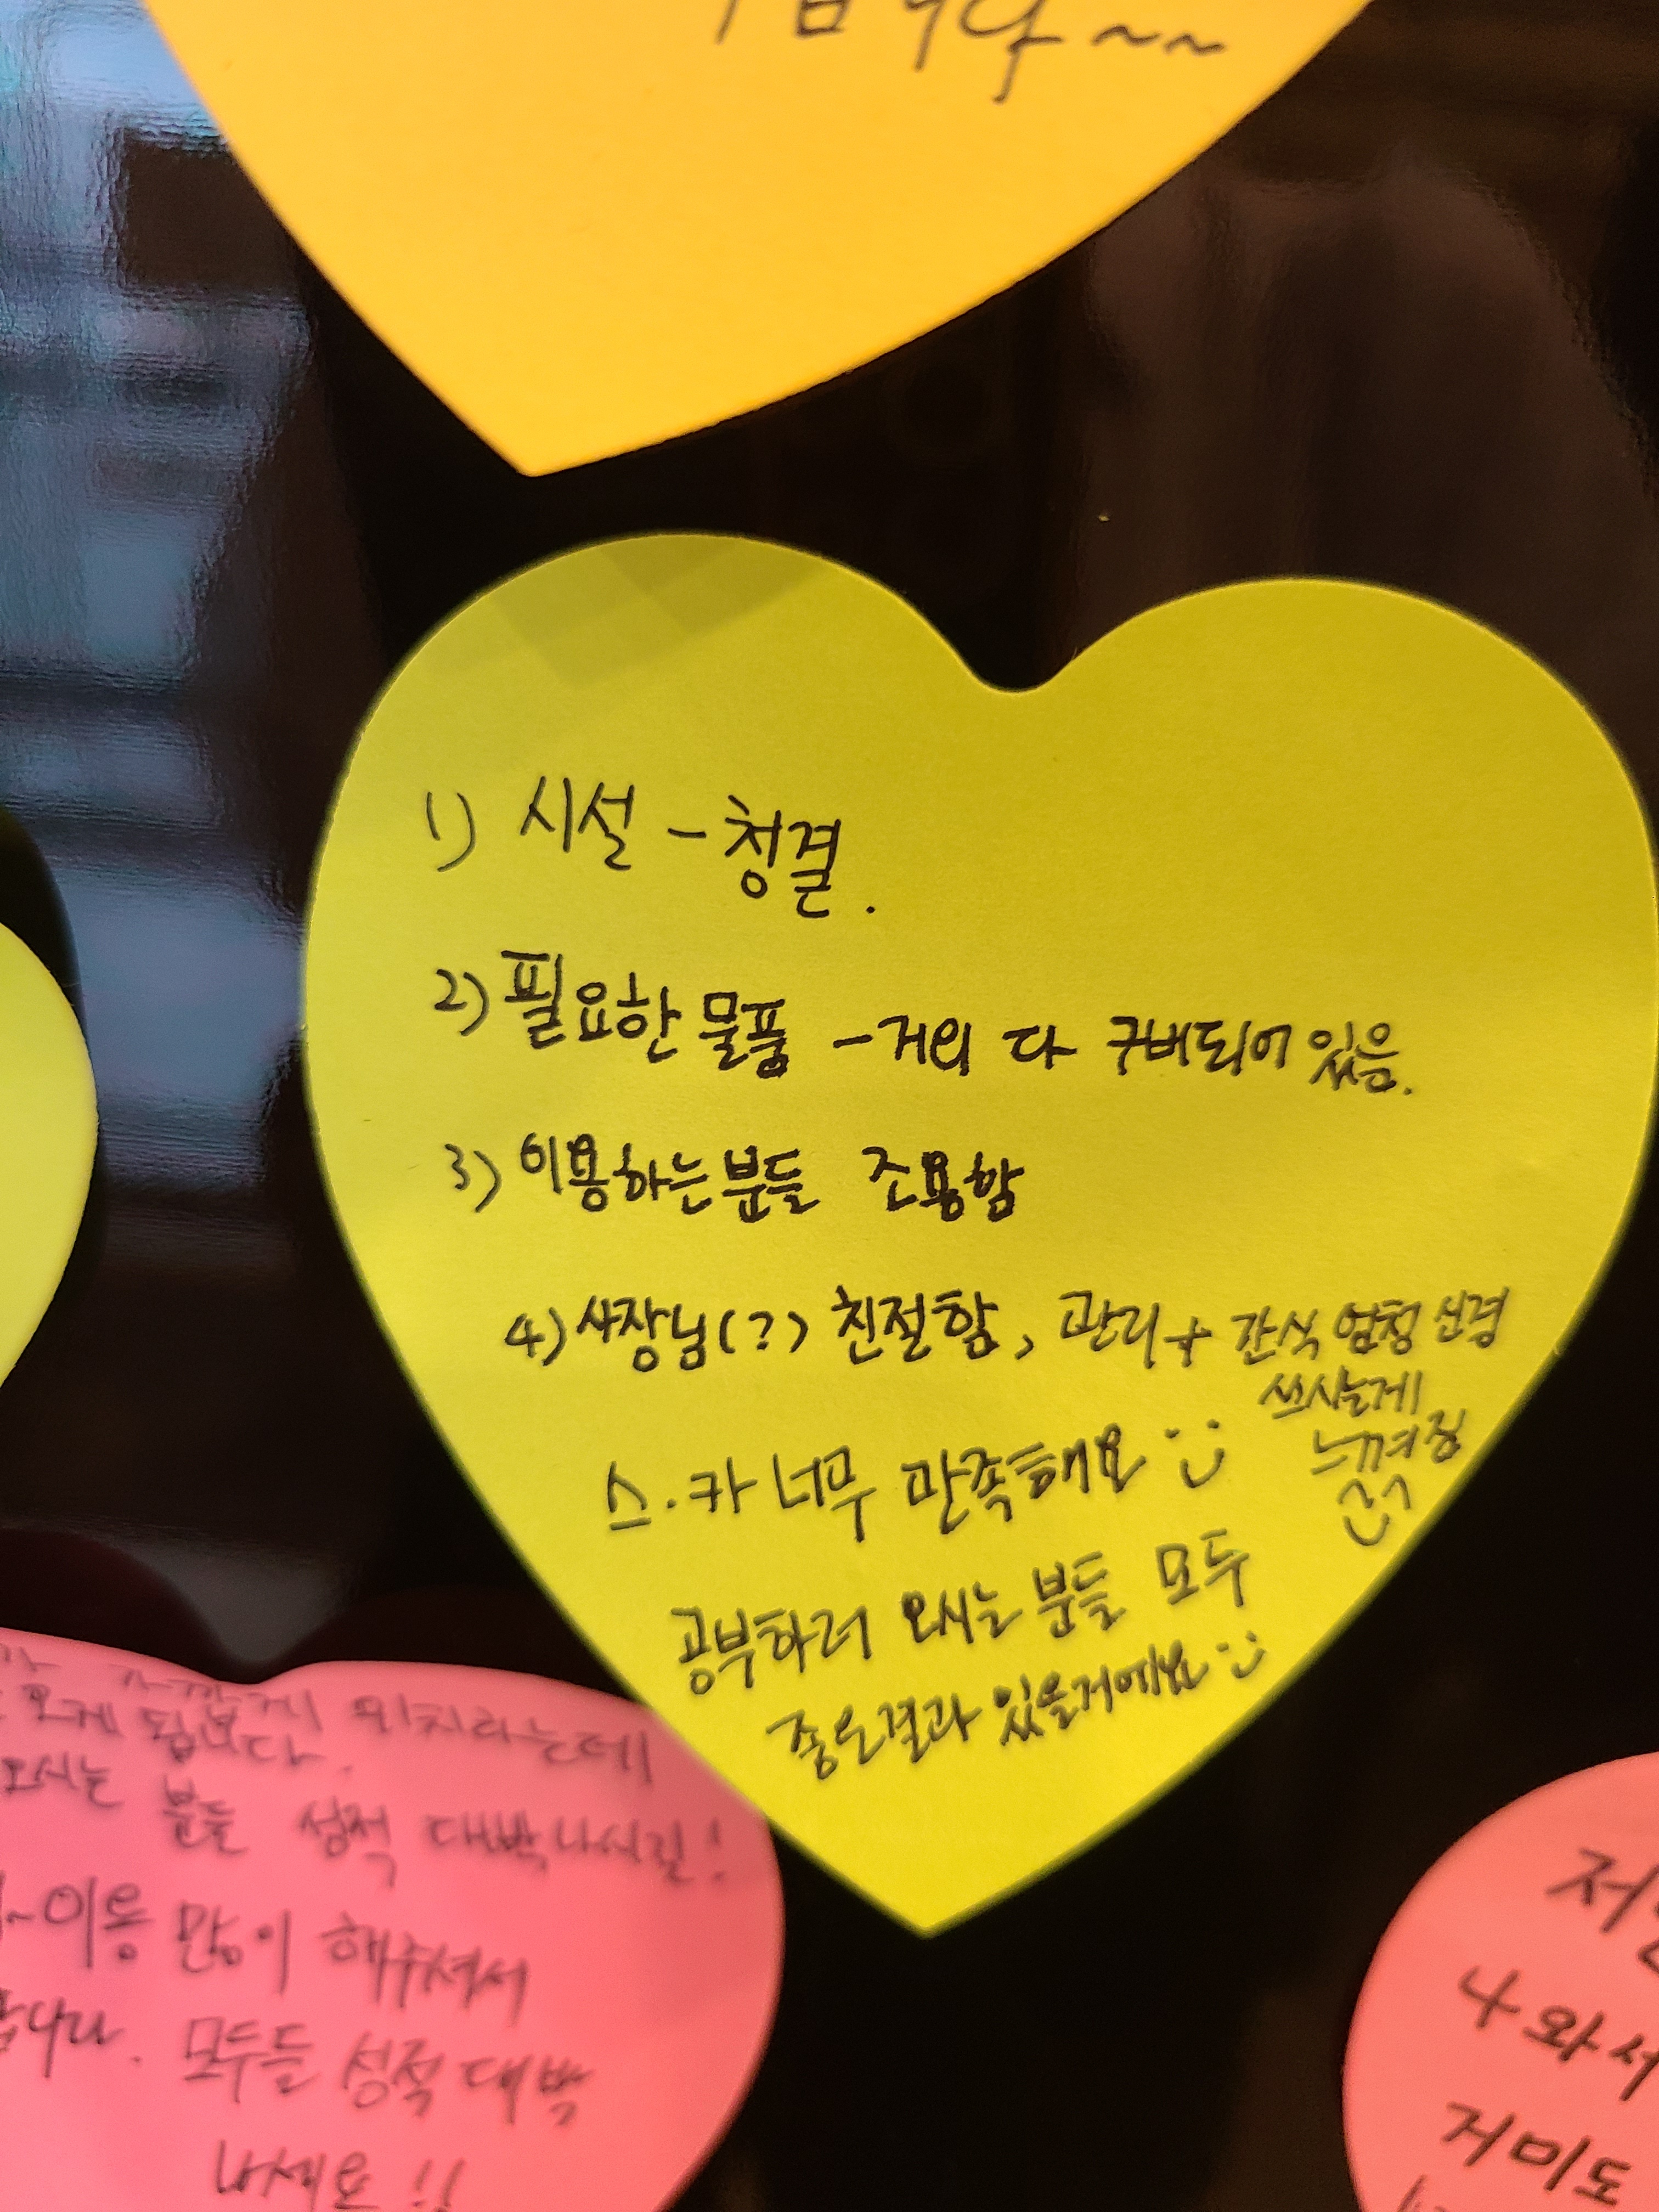 1) 시설 - 청결.
2) 필요한 물품 - 거의 다 구비되어 있음.
3) 이용하는분들 조용함
4) 사장님(?) 친절함, 관리 + 간식 엄청 신경
쓰시는게
느껴짐
스.카 너무 만족해요
공부하러 오시는 분들 모두
좋은결과 있을거에요
위치라는데
오게 됩니다.
오시는 분들 성적 대박나시길!
~이용 많이 해주셔서
모두들 성적 대박
내세요!!
나와서
거미도